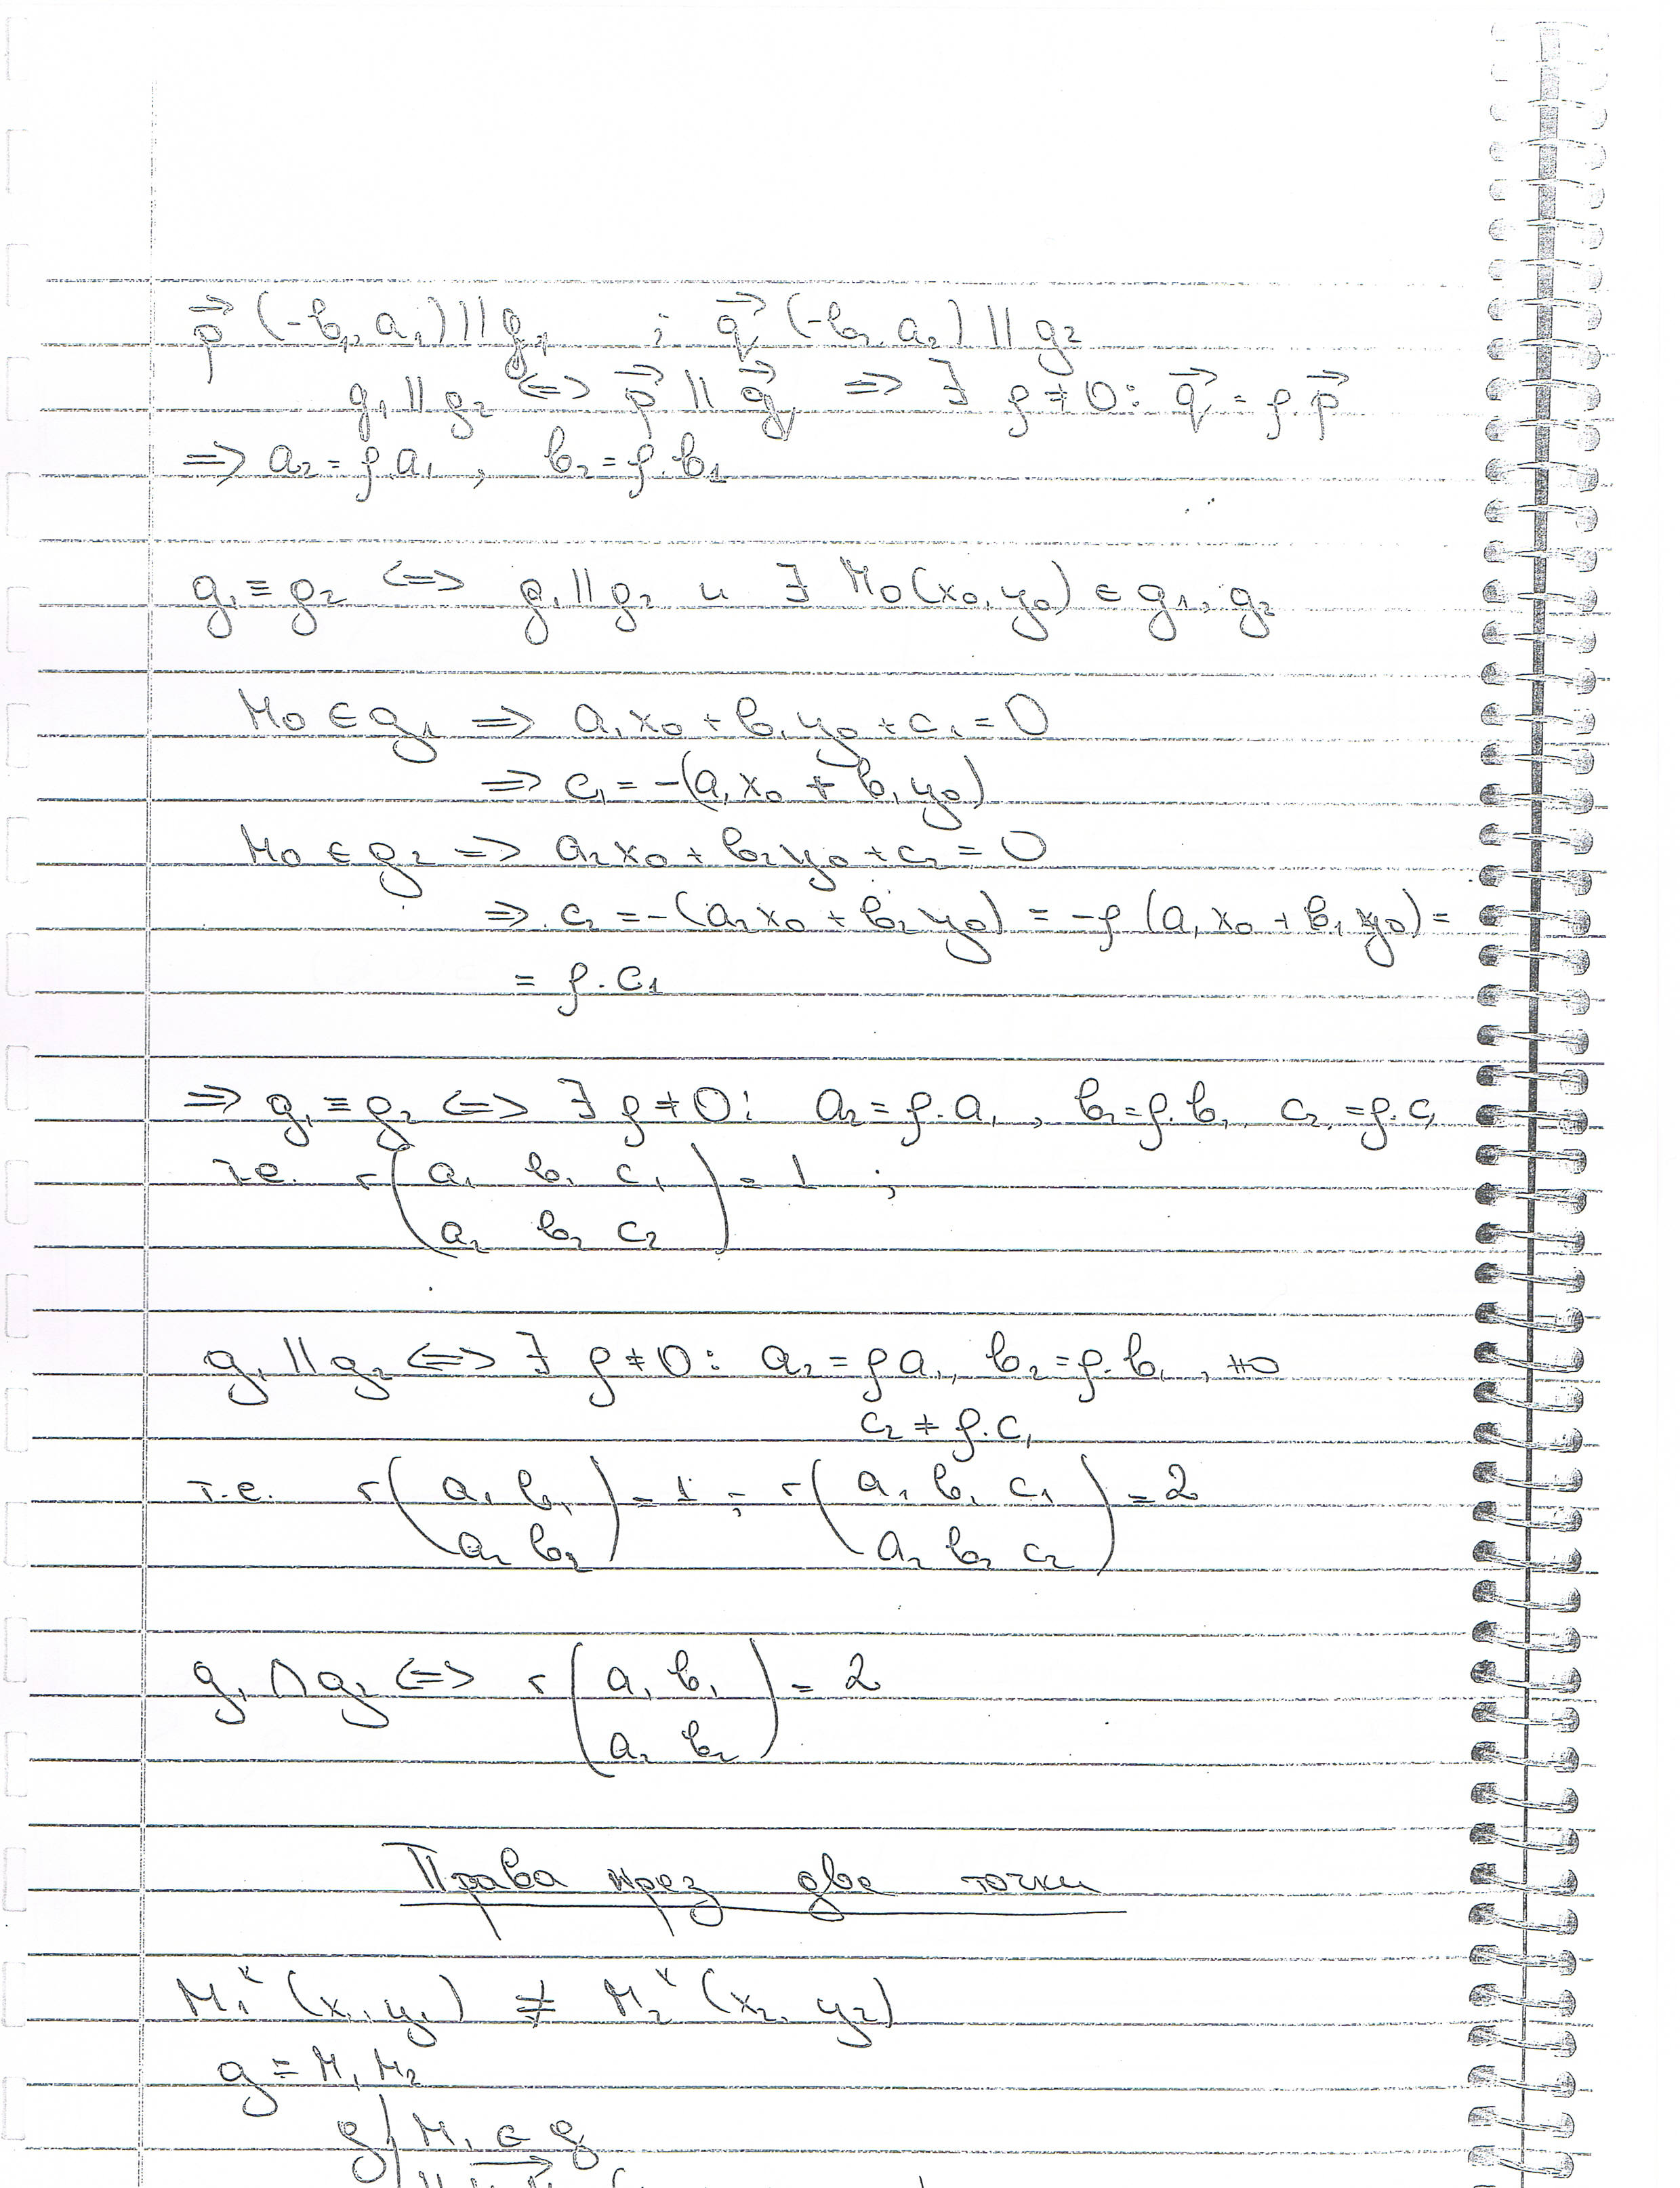 p⃗ (-b₁, a₁) || g₁ ; q⃗ (-b₂, a₂) || g₂
g₁ || g₂ <=> p⃗ || q⃗ => ∃ ρ ≠ 0: q⃗ = ρ.p⃗
=> a₂ = ρ.a₁ , b₂ = ρ.b₁
g₁ ≡ g₂ <=> g₁ || g₂ и ∃ M₀(x₀, y₀) ∈ g₁, g₂
M₀ ∈ g₁ => a₁x₀ + b₁y₀ + c₁ = 0
=> c₁ = -(a₁x₀ + b₁y₀)
M₀ ∈ g₂ => a₂x₀ + b₂y₀ + c₂ = 0
=> c₂ = -(a₂x₀ + b₂y₀) = -ρ (a₁x₀ + b₁y₀) =
= ρ.c₁
=> g₁ ≡ g₂ <=> ∃ ρ ≠ 0: a₂ = ρ.a₁ , b₂ = ρ.b₁, c₂ = ρ.c₁
т.е. r(a₁ b₁ c₁) = 1 ;
a₂ b₂ c₂
g₁ || g₂ <=> ∃ ρ ≠ 0: a₂ = ρa₁, b₂ = ρ.b₁ , но
c₂ ≠ ρ.c₁
т.е. r(a₁ b₁) = 1 ; r(a₁ b₁ c₁) = 2
a₂ b₂ a₂ b₂ c₂
g₁ ∩ g₂ <=> r(a₁ b₁) = 2
a₂ b₂
Права през две точки
M₁ᴷ (x₁, y₁) ≠ M₂ᴷ (x₂, y₂)
g ≡ M₁M₂
g | M₁ ∈ g